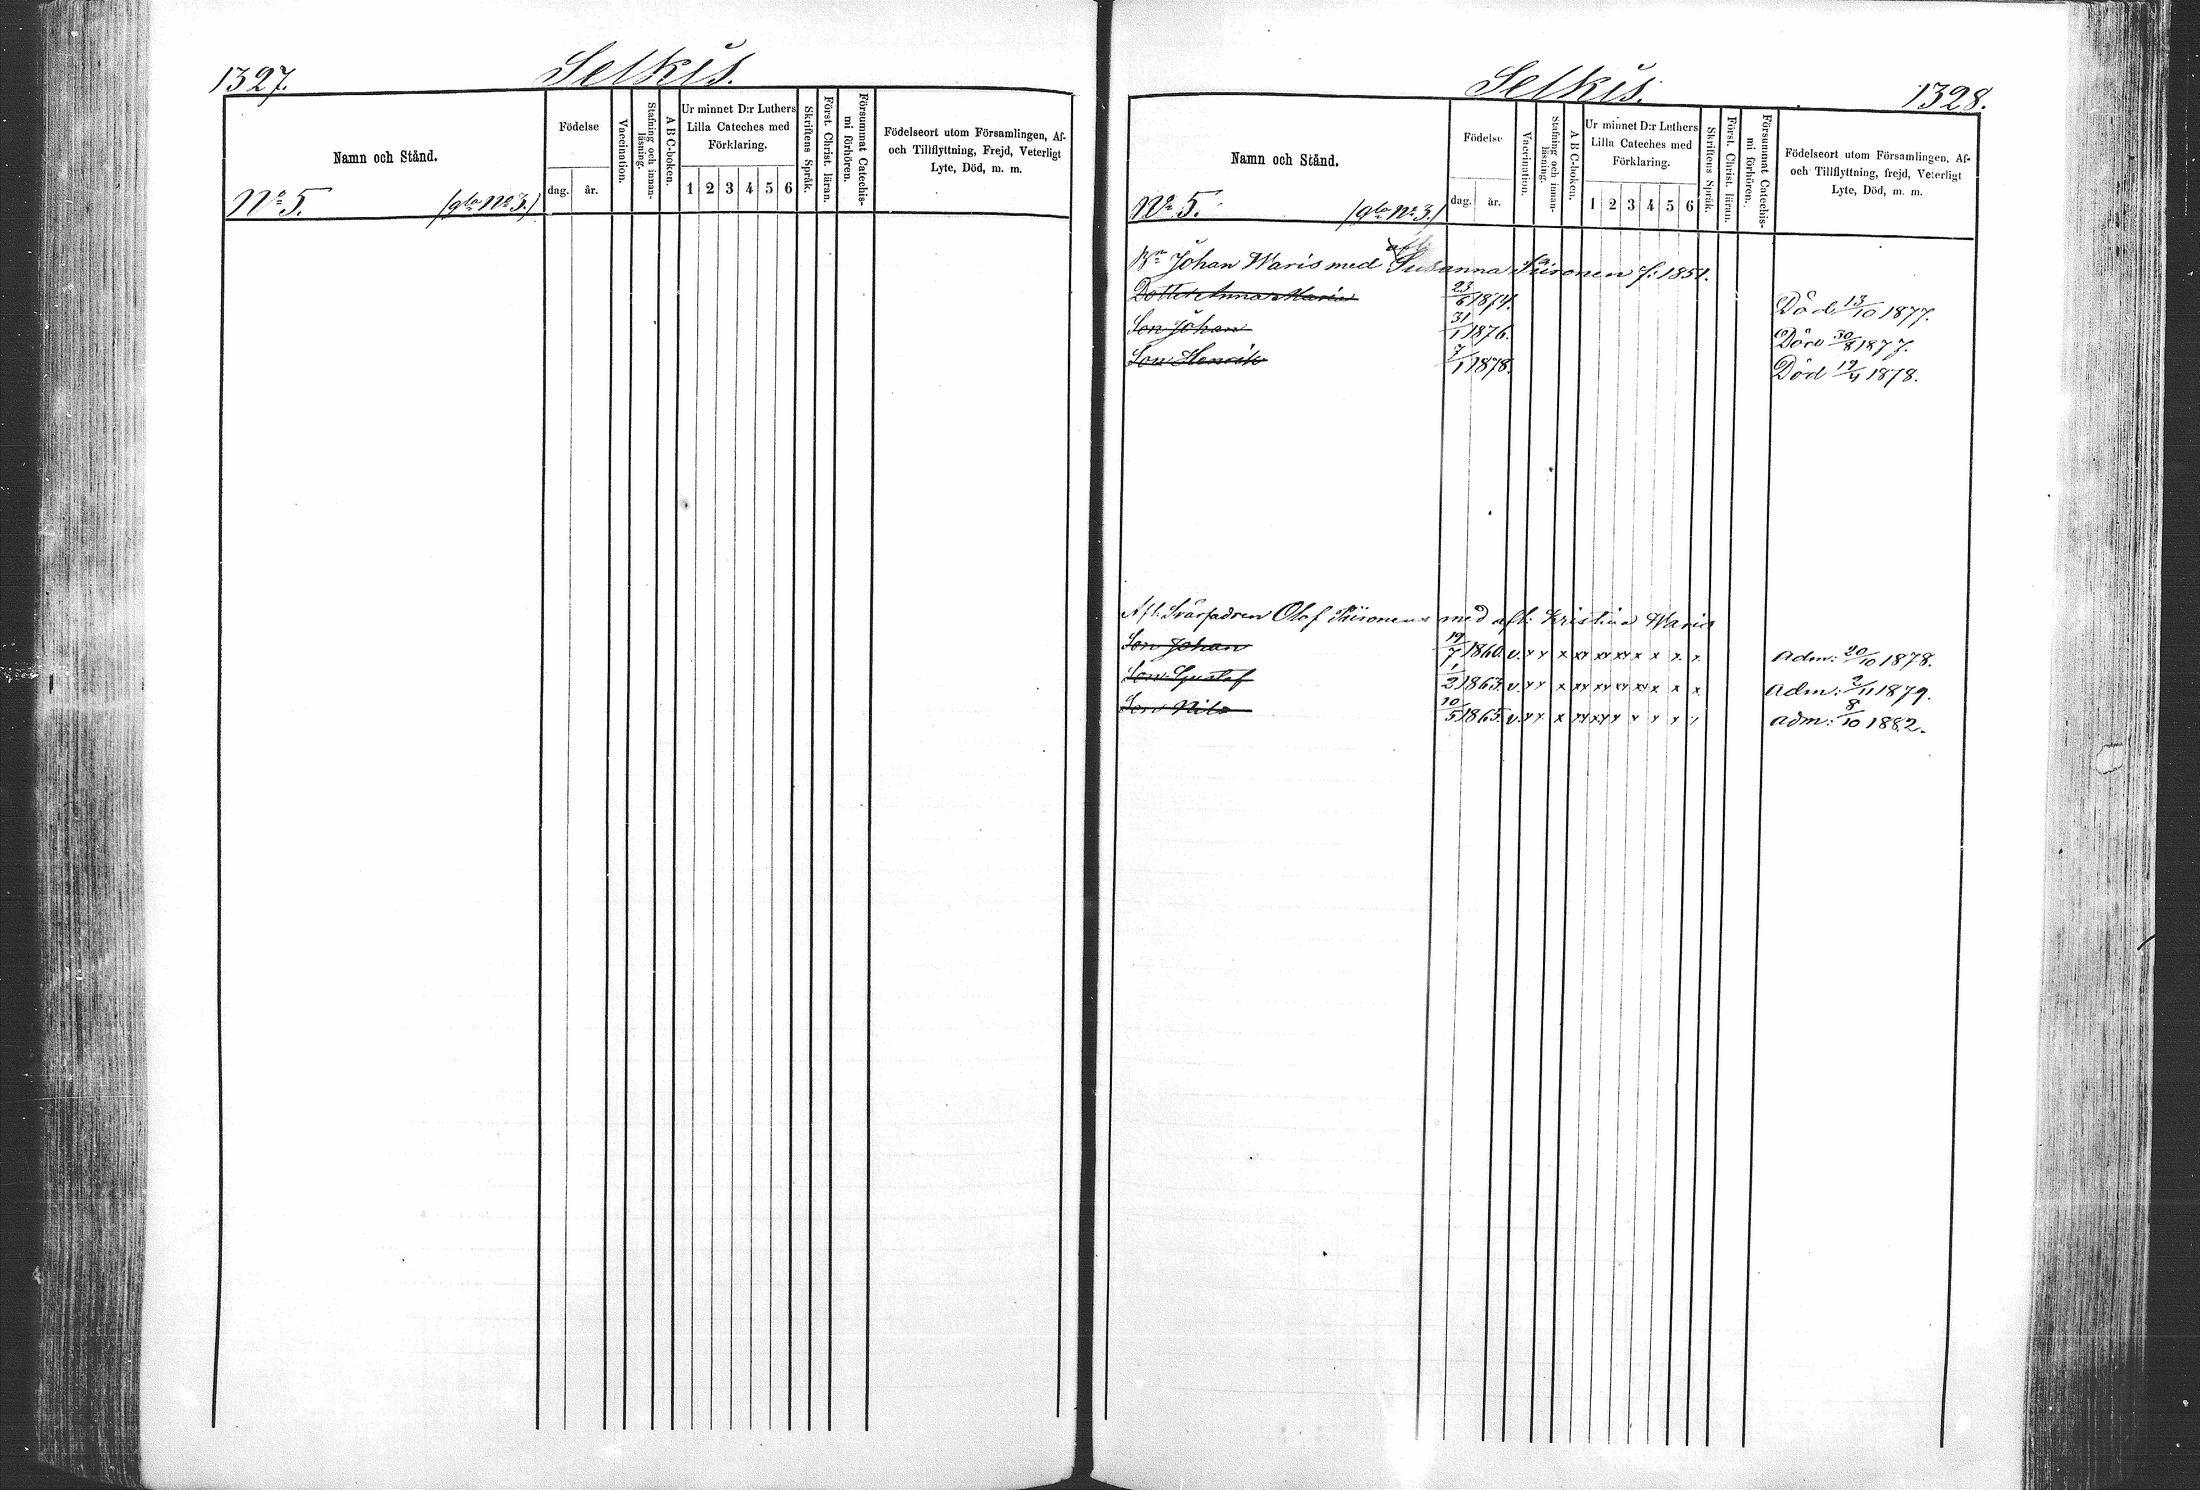 1327.
Selkis.
Namn och Stånd.
Födelse
dag.
år.
Vaccination.
Stafning och innan-
läsning.
A B C-boken.
Ur minnet D:r Luthers
Lilla Cateches med
Förklaring.
1 2 3 4 5 6
Skriftens Språk.
Först. Christ. läran.
Försummat Catechis-
mi förhören.
Födelseort utom Församlingen, Af-
och Tillflyttning, Frejd, Veterligt
Lyte, Död, m. m.
No 5. (gla No 3.)
Selkis.
1328.
Namn och Stånd.
Födelse
dag.
år.
Vaccination.
Stafning och innan-
läsning.
A B C-boken.
Ur minnet D:r Luthers
Lilla Cateches med
Förklaring.
1 2 3 4 5 6
Skriftens Språk.
Först. Christ. läran.
Försummat Catechis-
mi förhören.
Födelseort utom Församlingen, Af-
och Tillflyttning, frejd, Veterligt
Lyte, Död, m. m.
No 5. (gla No 3.)
afl.
Bn Johan Waris med Susanna Piironen f: 1851.
Dotter Anna Maria 23/6 1874. Död 13/10 1877.
Son Johan 31/1 1876. Död 30/8 1877.
Son Henrik 7/1 1878. Död 19/4 1878.
Afl. Svärfadren Olof Piironens med afl. Kristina Waris
Son Johan 19/7 1860. v. x x x xx xx xx x x x x adm: 20/10 1878.
Son Gustaf 1/2 1863. v. x x x xx xx xx xx x x x adm: 2/11 1879.
Son Nils 10/5 1865. v. x x x xx xx x x x x x adm: 8/10 1882.